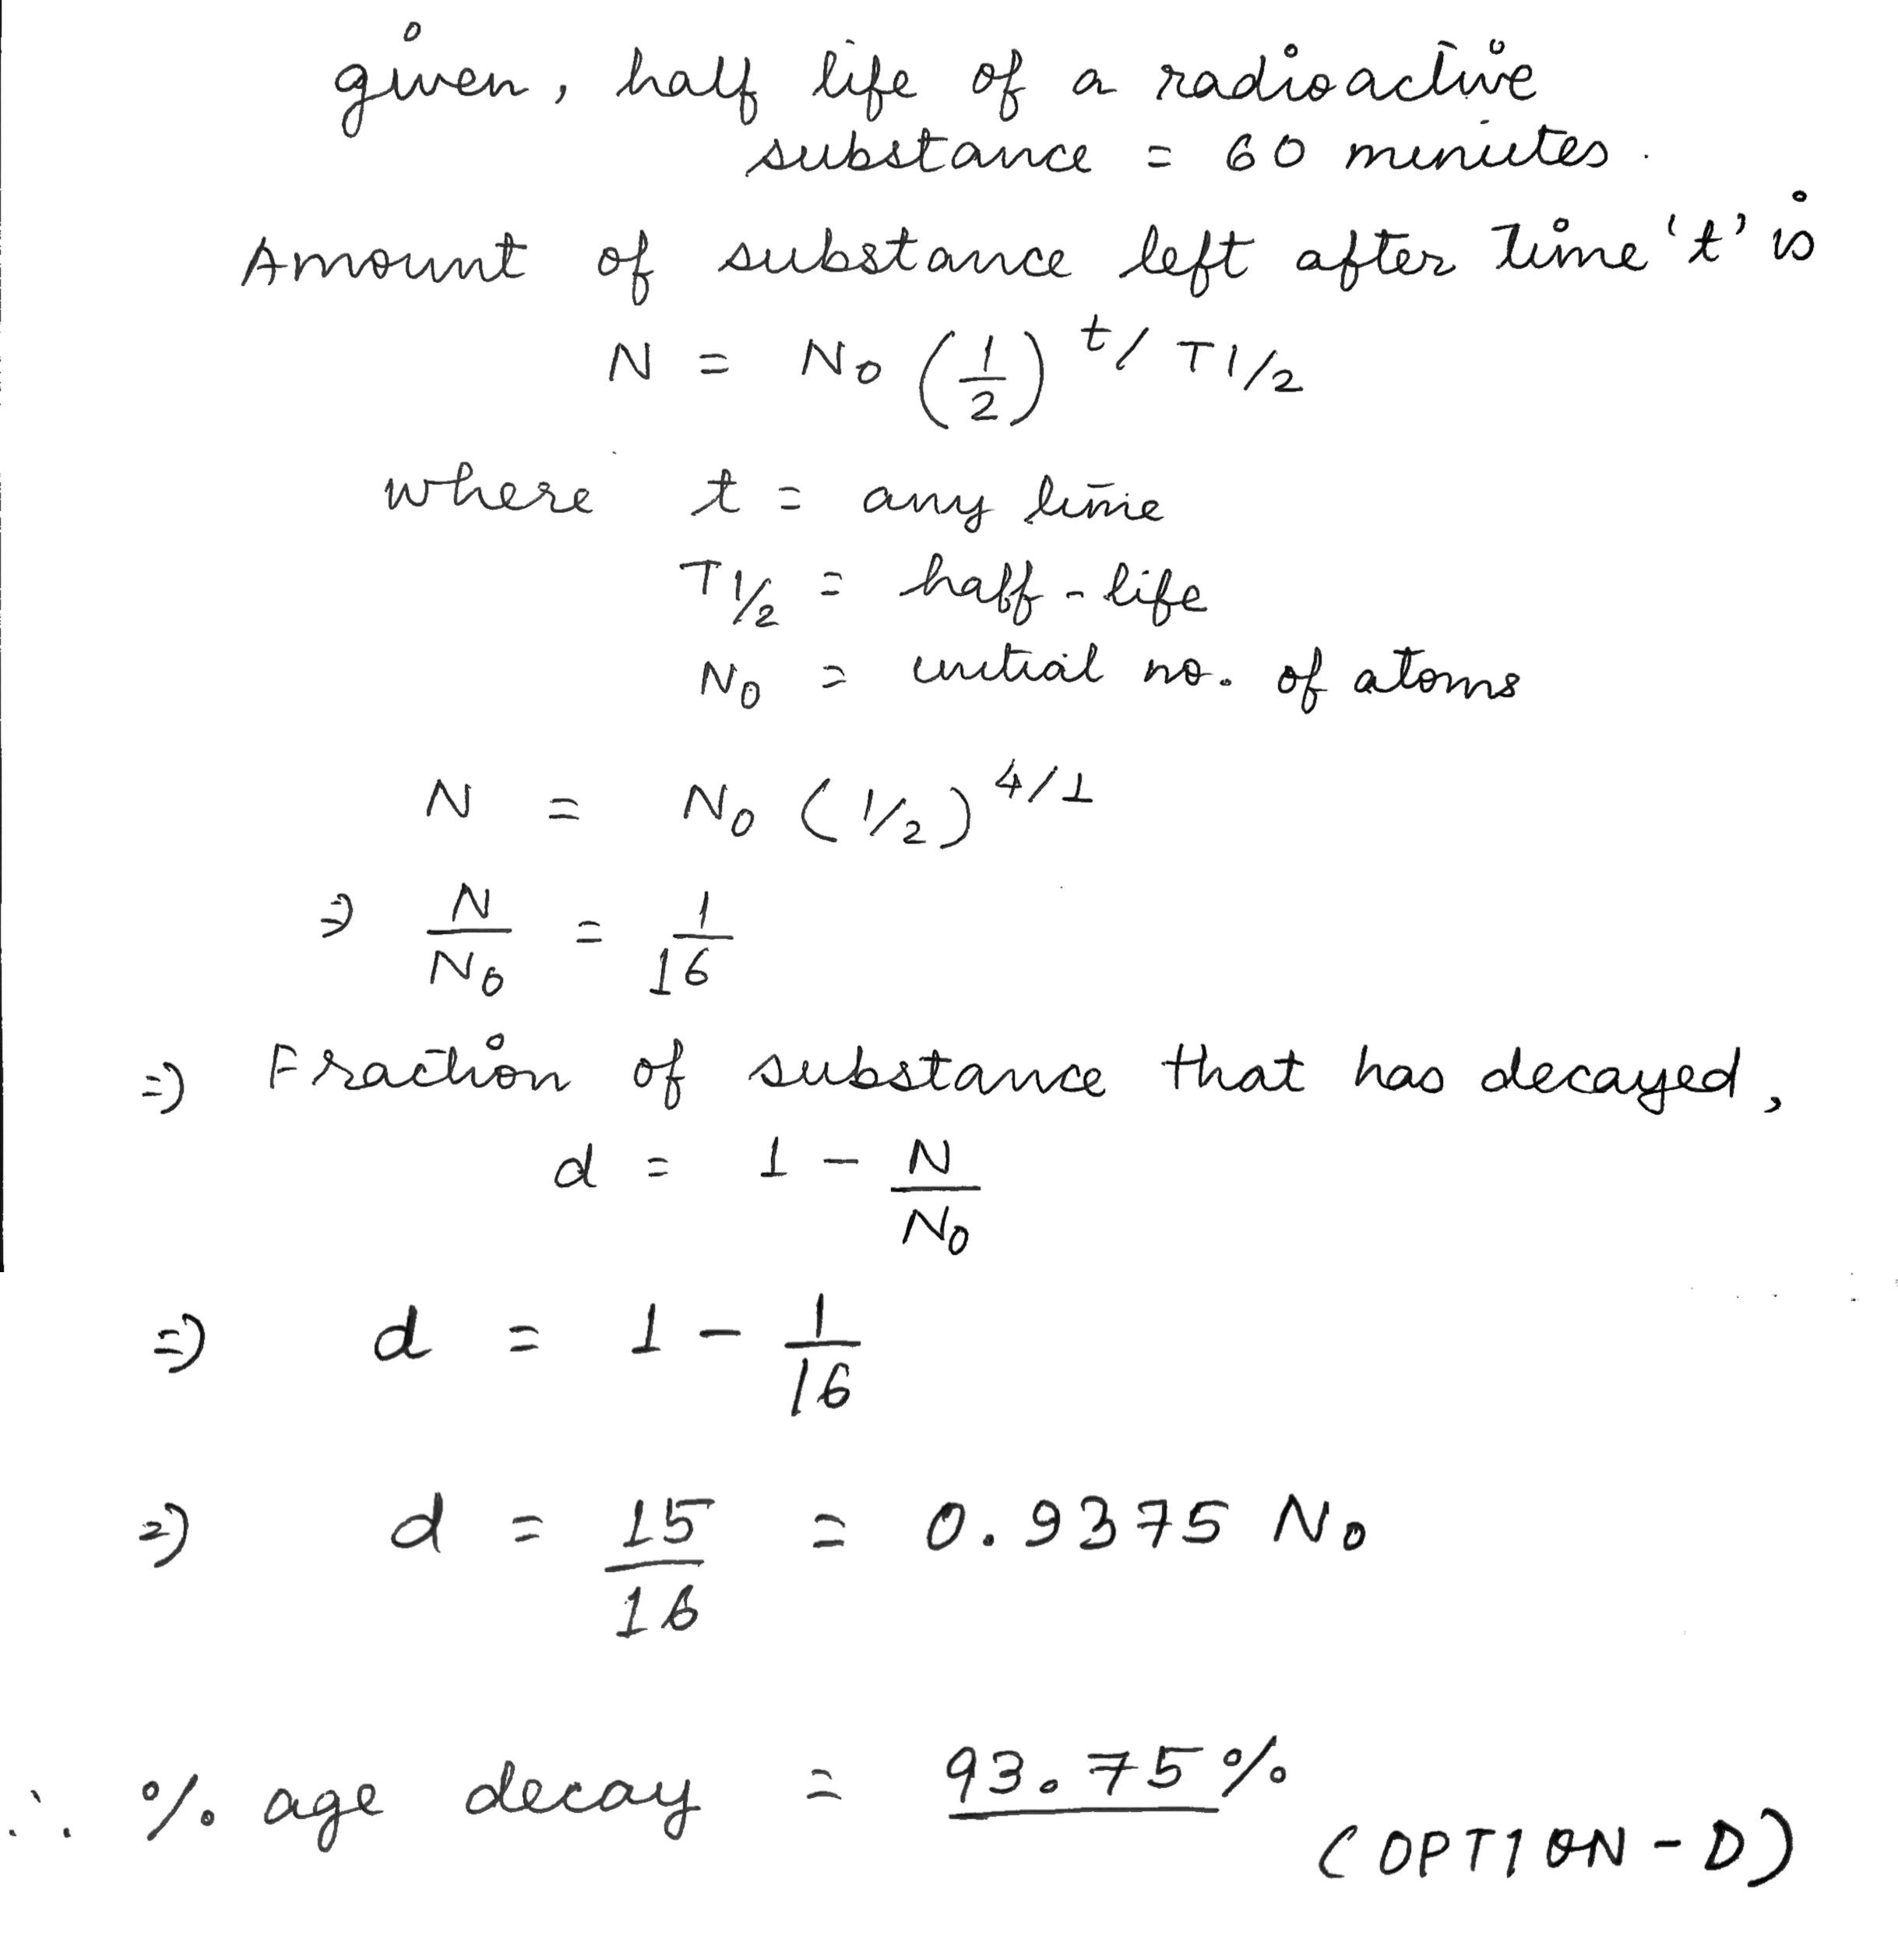 given, half life of a radioactive
substance = 60 minutes.
Amount of substance left after time 't' is
N = N₀ (1/2)^(t/T1/2)
where t = any time
T1/2 = half-life
N₀ = initial no. of atoms
N = N₀ (1/2)^(4/1)
⇒ N/N₀ = 1/16
⇒ Fraction of substance that has decayed,
d = 1 - N/N₀
⇒ d = 1 - 1/16
⇒ d = 15/16 = 0.9375 N₀
∴ % age decay = 93.75%
(OPTION-D)